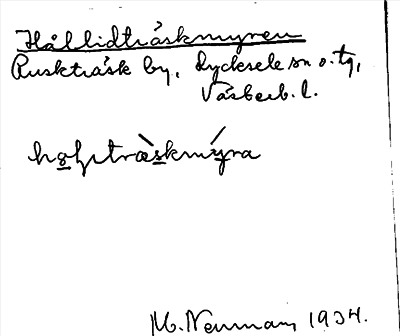 Hållidträskmyren
Ruskträsk by, Lycksele sn o. tg,
Väsberb. l.
hol̥iträskmýra
M. Neuman, 1934.